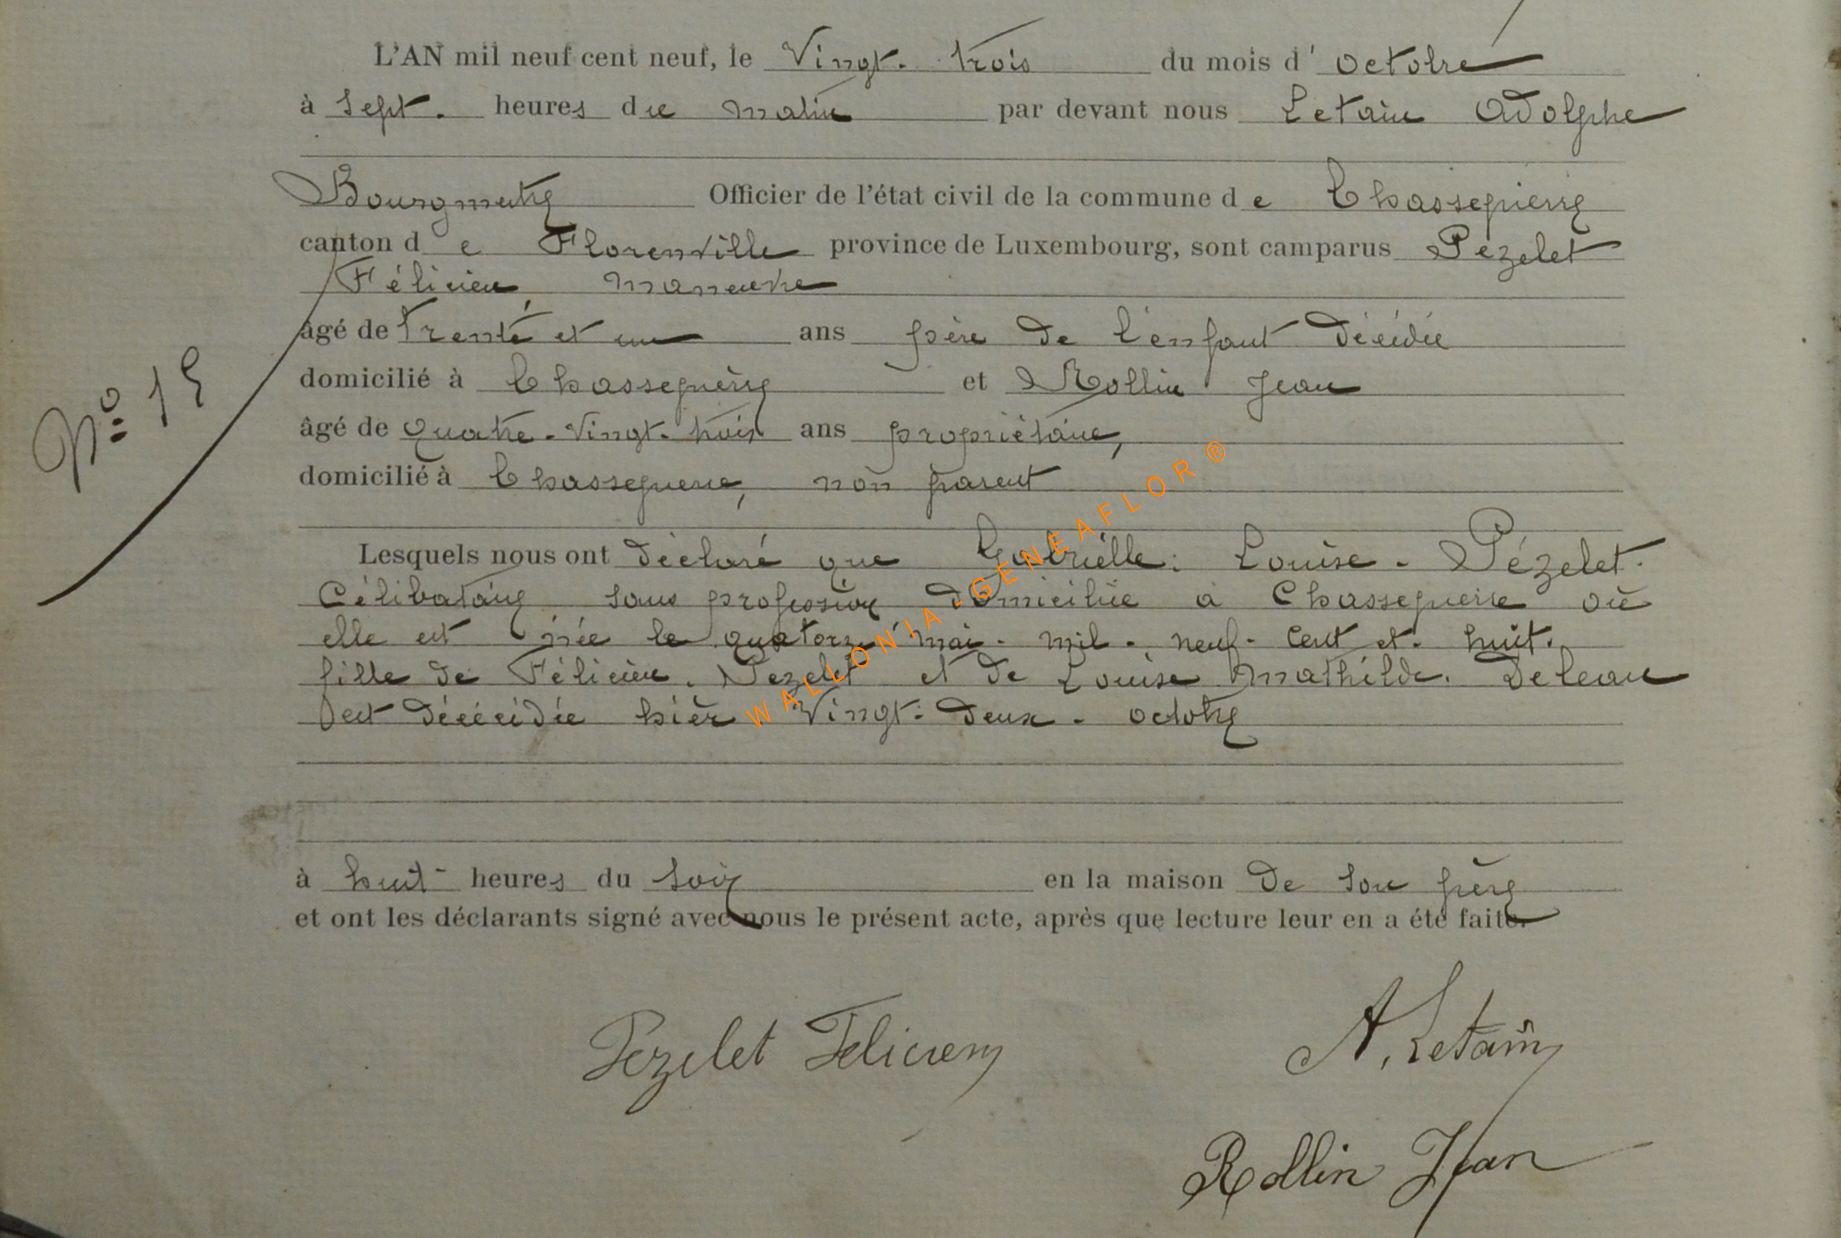 L'AN mil neuf cent neuf, le Vingt-trois du mois d'octobre
à sept heures du matin par devant nous Letain Adolphe
Bourgmestre Officier de l'état civil de la commune de Chassepierre
canton de Florenville province de Luxembourg, sont camparus Pézelet
Félicien, manœuvre
âgé de trente et un ans père de l'enfant décédée
domicilié à Chassepierre et Rollin Jean
âgé de quatre-vingt-trois ans propriétaire,
domicilié à Chassepierre, non parent
Nº 15
Lesquels nous ont déclaré que Gabrielle-Louise-Pézelet.
Célibataire sans profession domiciliée à Chassepierre où
elle est née le quatorze mai-mil-neuf-cent et-huit.
fille de Félicien Pezelet et de Louise Mathilde Deleau
est décédée hier Vingt-deux-octobre
à huit heures du soir en la maison de son père
et ont les déclarants signé avec nous le présent acte, après que lecture leur en a été faite.
Pezelet Felicien
A. Letain
Rollin Jean
WALLONIA-GENEAFLOR®